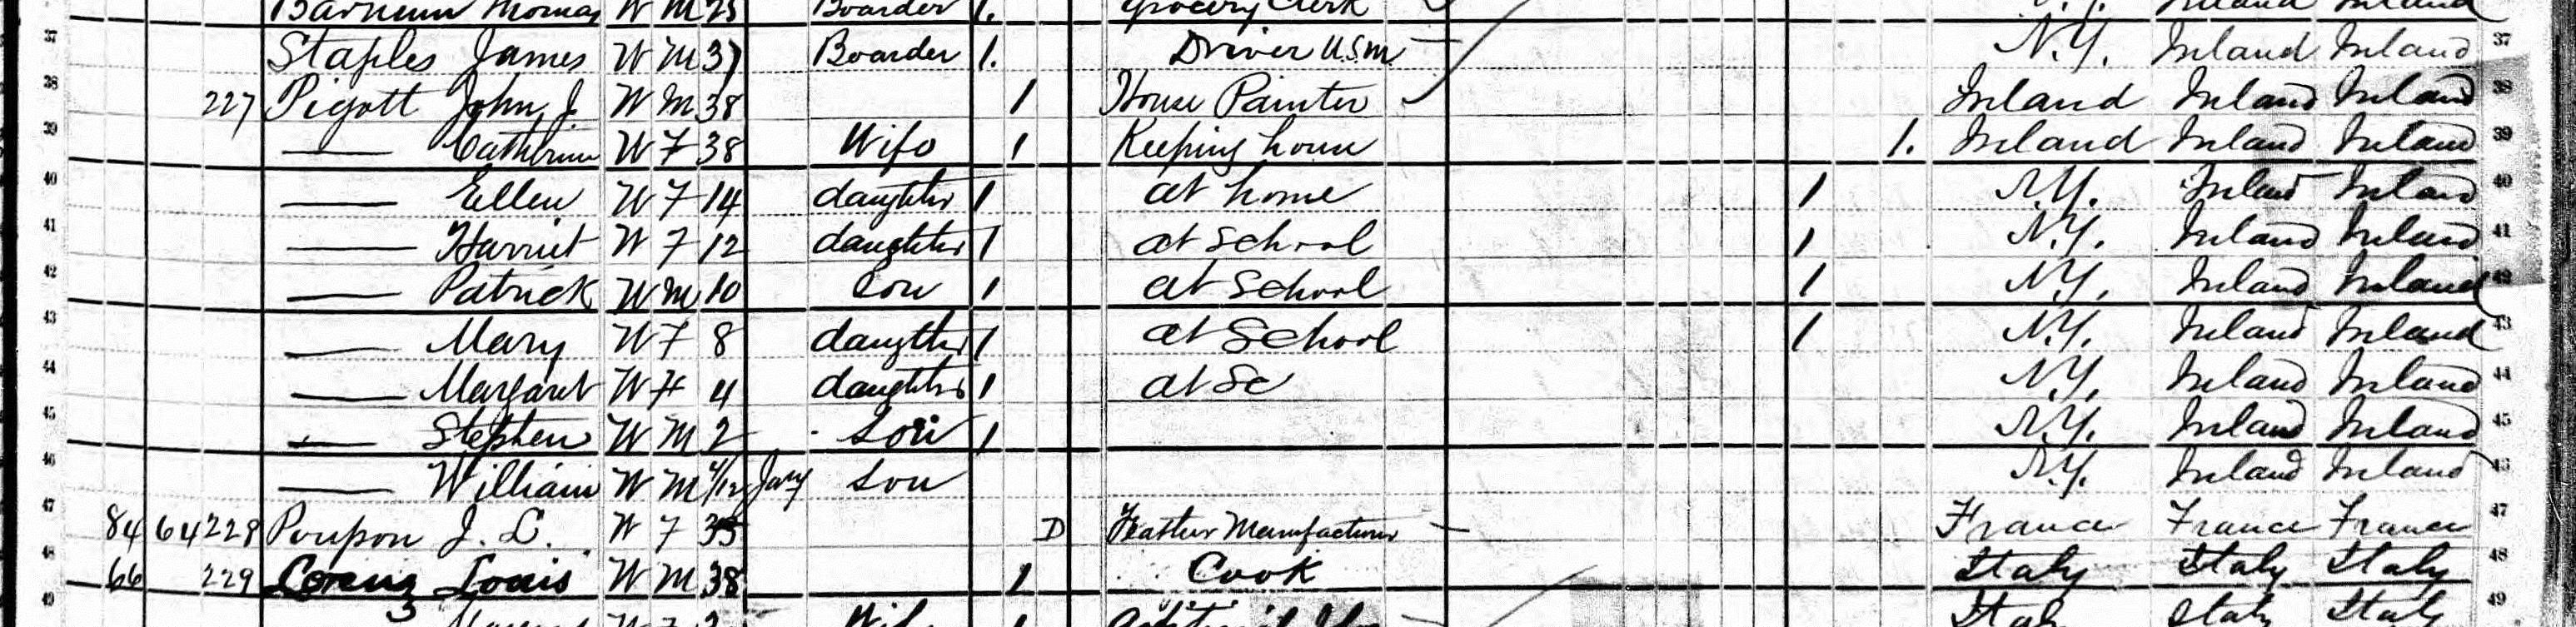 Barnum Thomas W M 25 Boarder 1. Grocery Clerk N.Y. Ireland Ireland
37 Staples James W M 37 Boarder 1. Driver U.S.M N.Y. Ireland Ireland 37
38 227 Pigott John J. W M 38 1 House Painter Ireland Ireland Ireland 38
39 —— Catherine W F 38 Wife 1 Keeping house 1. Ireland Ireland Ireland 39
40 —— Ellen W F 14 daughter 1 at home 1 N.Y. Ireland Ireland 40
41 —— Harriet W F 12 daughter 1 at school 1 N.Y. Ireland Ireland 41
42 —— Patrick W M 10 Son 1 at School 1 N.Y. Ireland Ireland 42
43 —— Mary W F 8 daughter 1 at School 1 N.Y. Ireland Ireland 43
44 —— Margaret W F 4 daughter 1 at Sc N.Y. Ireland Ireland 44
45 —— Stephen W M 2 Son 1 N.Y. Ireland Ireland 45
46 —— William W M 4/12 Jany Son N.Y. Ireland Ireland 46
47 84 64 228 Poupon J. L. W F 35 D Feather Manufacturer France France France 47
48 66 229 Lorenz Louis W M 38 1 Cook Italy Italy Italy 48
49 W F Wife 1 Italy Italy Italy 49